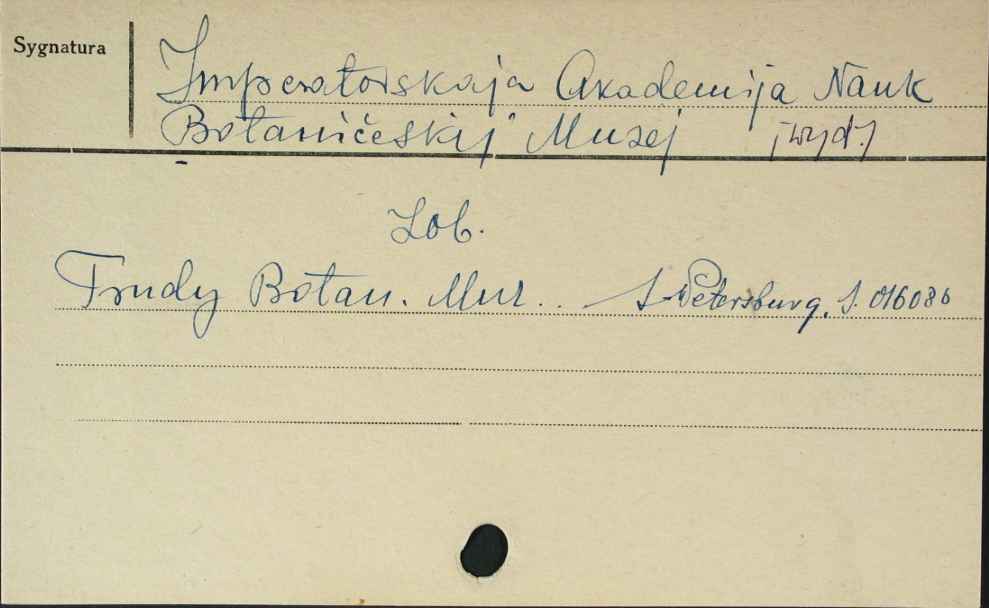 Sygnatura
Imperatorskaja Akademija Nauk
Botaničeskij Muzej [wyd.]
Zob.
Trudy Botan. Muz.. — S-Petersburg. S. 016086